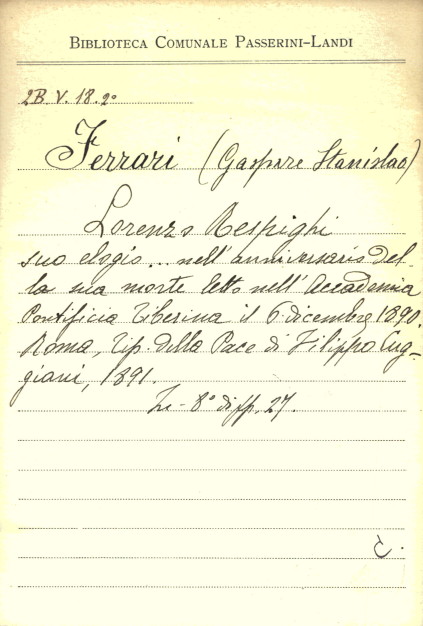 BIBLIOTECA COMUNALE PASSERINI-LANDI
2B V. 18. 2º
Ferrari (Gaspare Stanislao)
Lorenzo Respighi
suo elogio... nell'anniversario del-
la sua morte letto nell'Accademia
Pontificia Tiberina il 6 dicembre 1890.
Roma, Tip. della Pace di Filippo Cug-
giani, 1891.
In-8º di pp. 27.
C.